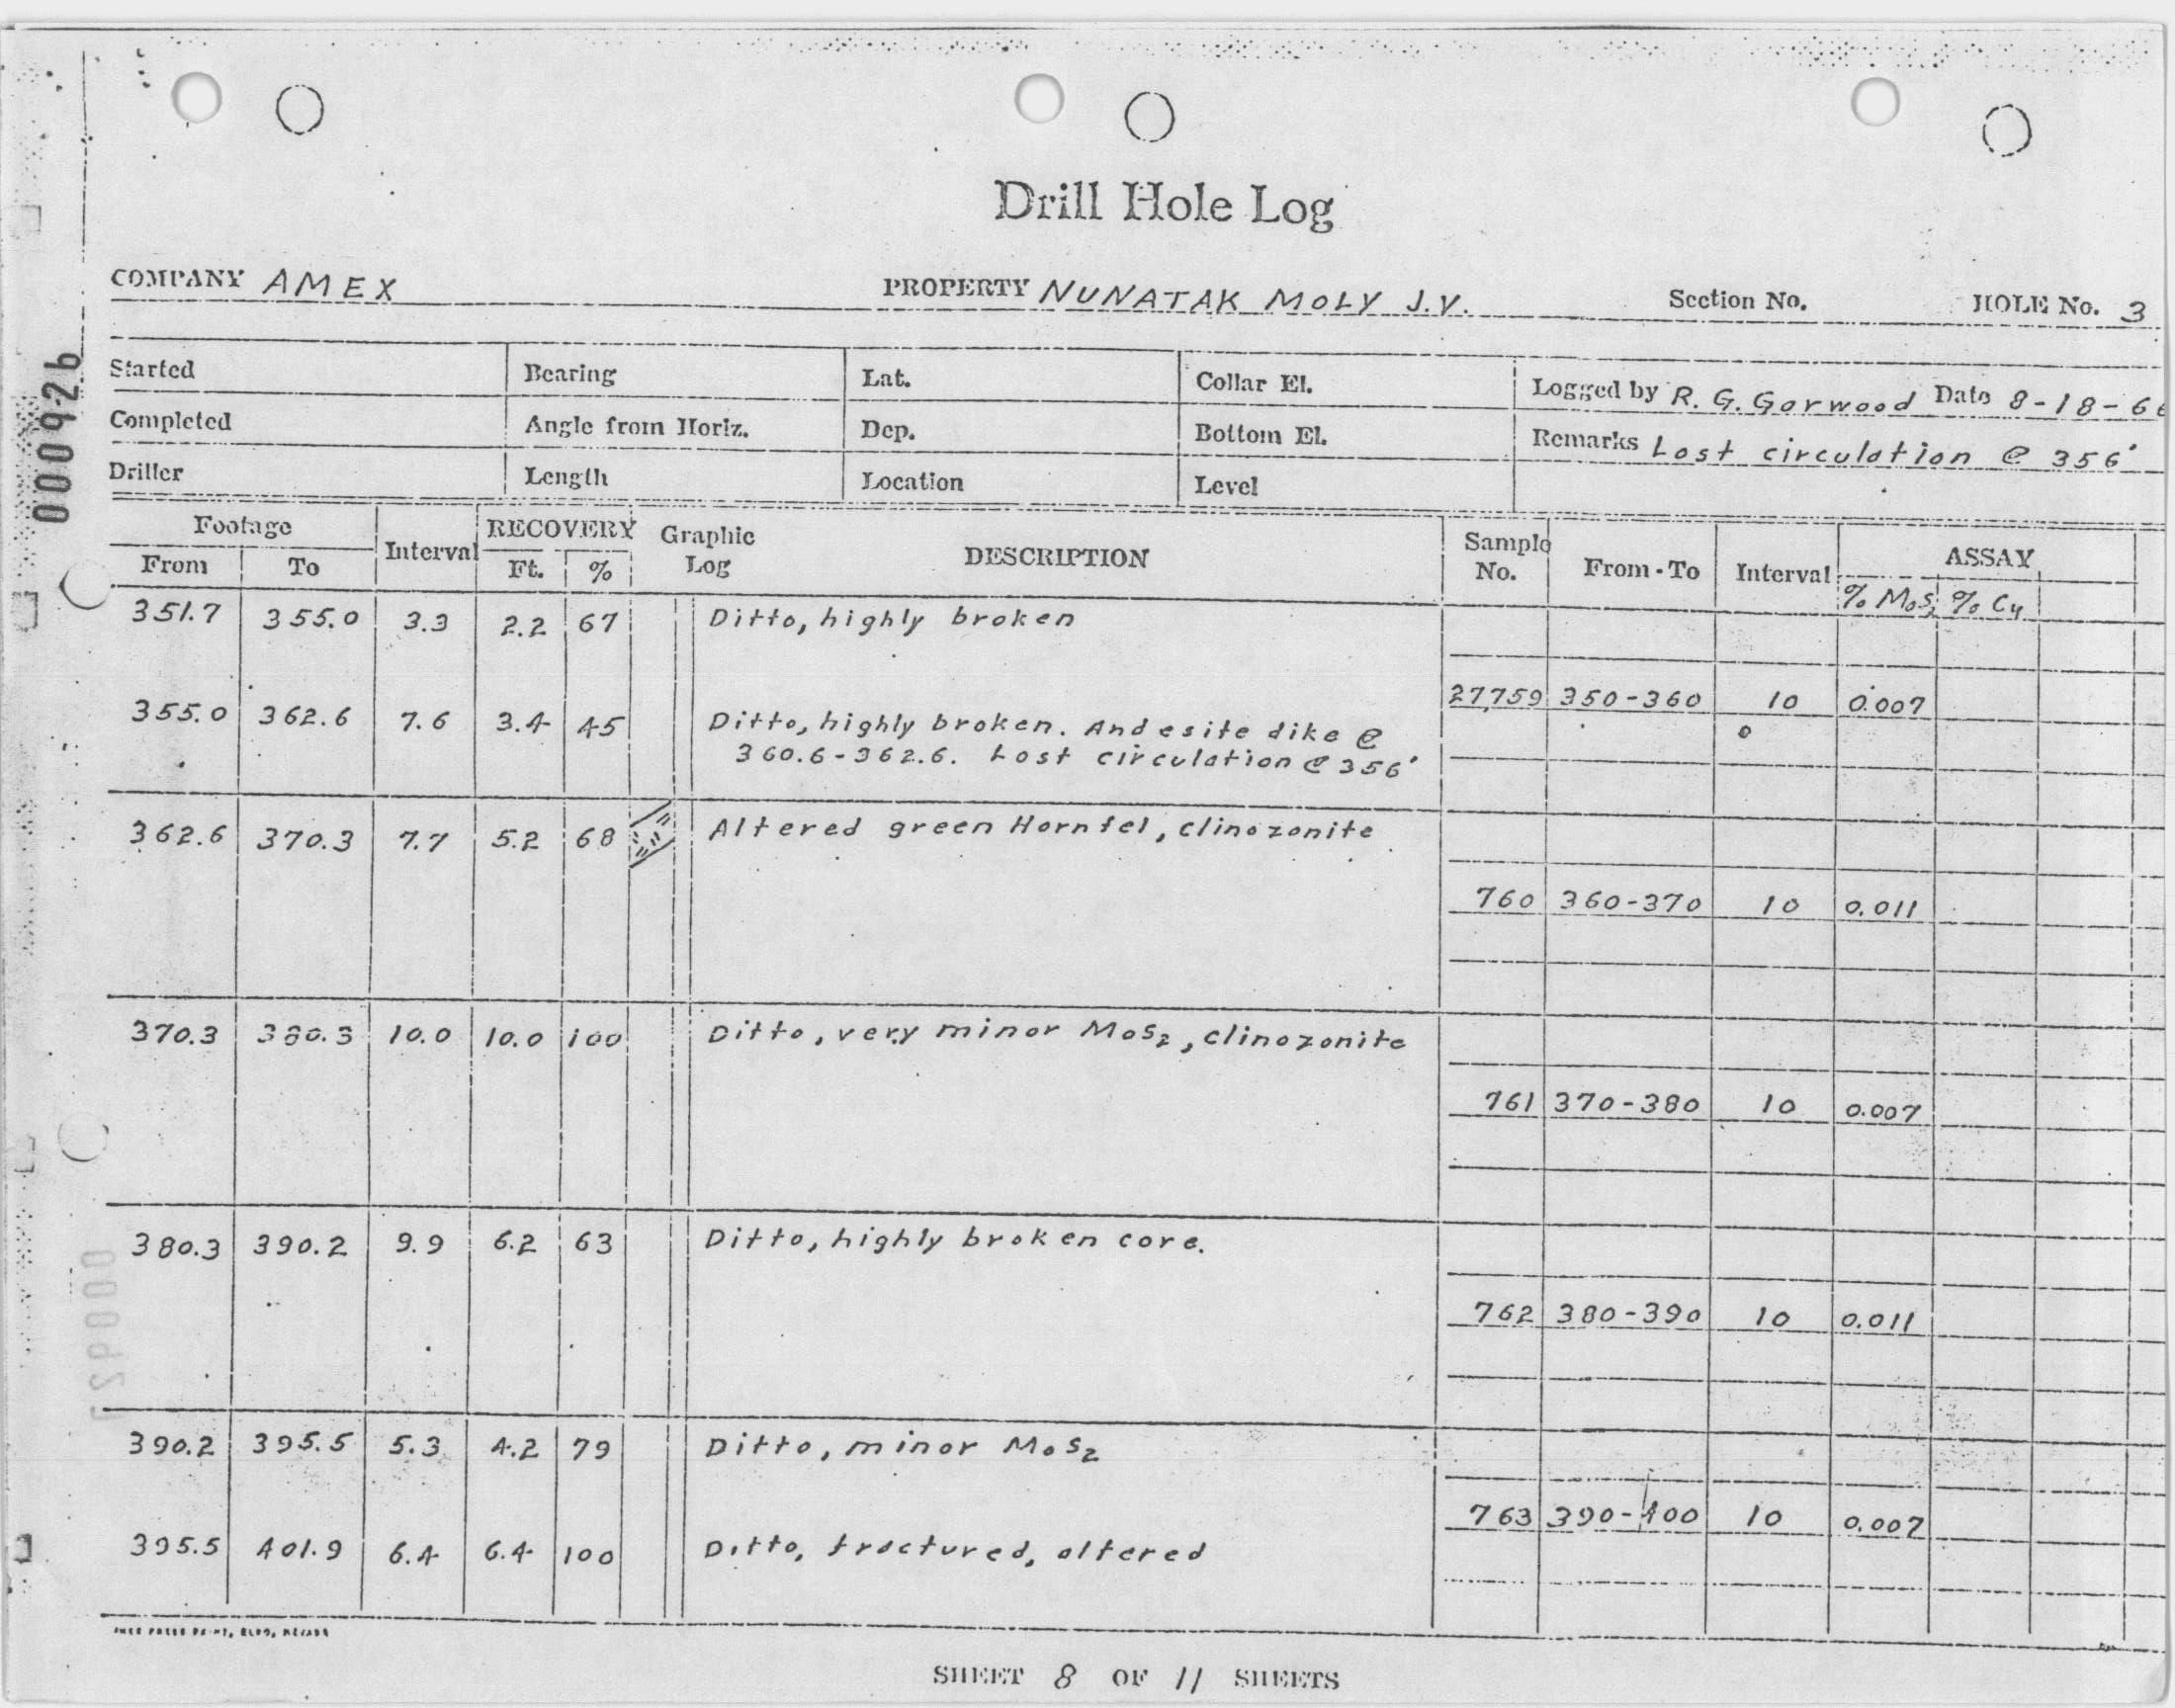 Drill Hole Log
COMPANY AMEX PROPERTY NUNATAK MOLY J.V. Section No. HOLE No. 3
000926
Started Bearing Lat. Collar El. Logged by R. G. Gorwood Date 8-18-66
Completed Angle from Horiz. Dep. Bottom El. Remarks Lost circulation @ 356'
Driller Length Location Level
Footage Interval RECOVERY Graphic Log DESCRIPTION Sample No. From-To Interval ASSAY
From To Ft. % % MoS2 % Cu
351.7 355.0 3.3 2.2 67 Ditto, highly broken
27759 350-360 10 0.007
355.0 362.6 7.6 3.4 45 Ditto, highly broken. Andesite dike @
360.6-362.6. Lost circulation @ 356'
362.6 370.3 7.7 5.2 68 Altered green Hornfel, clinozonite
760 360-370 10 0.011
370.3 380.3 10.0 10.0 100 Ditto, very minor MoS2, clinozonite
761 370-380 10 0.007
380.3 390.2 9.9 6.2 63 Ditto, highly broken core.
762 380-390 10 0.011
390.2 395.5 5.3 4.2 79 Ditto, minor MoS2
763 390-400 10 0.007
395.5 401.9 6.4 6.4 100 Ditto, fractured, altered
SHEET 8 OF 11 SHEETS